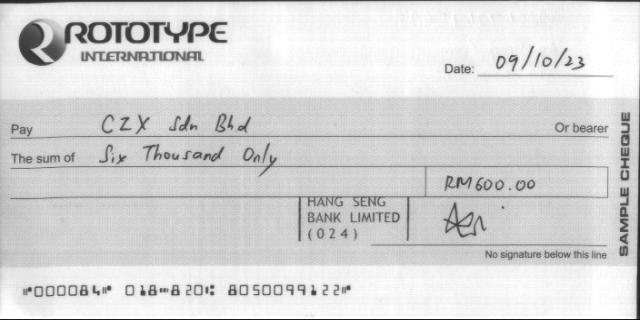 ROTOTYPE
INTERNATIONAL
Date: 09/10/23
Pay CZX Sdn Bhd Or bearer
The sum of Six Thousand Only
RM600.00
HANG SENG
BANK LIMITED
(024)
No signature below this line
SAMPLE CHEQUE
⑈000084⑈ 018⑉820⑆ 8050099122⑈